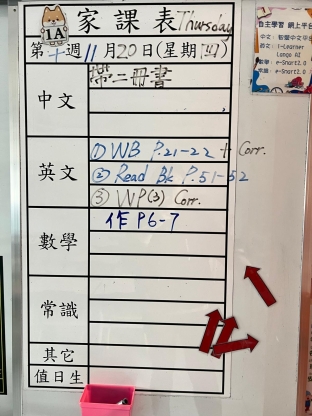 1A
家課表 Thursday
第十週 11月20日(星期四)
中文 帶二冊書
英文 ① WB P.21-22 + Corr.
② Read Bk P.51-52
③ WP(3) Corr.
數學 作 P6-7
常識
其它
值日生
自主學習 網上平台
i-Learner
e-Smart2.0
e-Smart2.0